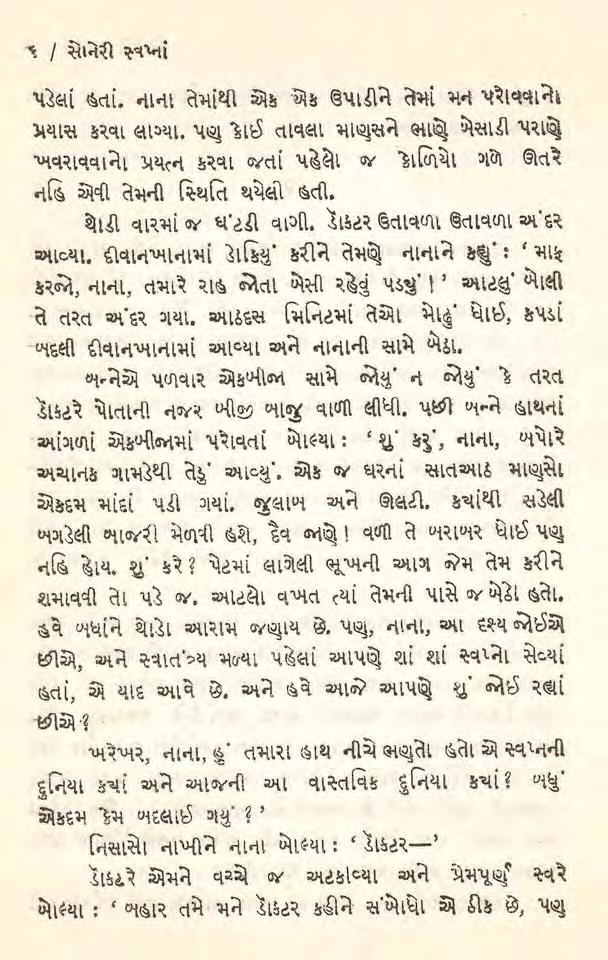 ૬ / સોનેરી સ્વપ્નાં
પડેલાં હતાં. નાના તેમાંથી એક એક ઉપાડીને તેમાં મન પરોવવાનો
પ્રયાસ કરવા લાગ્યા. પણ કોઈ તાવલા માણસને ભાણે બેસાડી પરાણે
ખવરાવવાનો પ્રયત્ન કરવા જતાં પહેલો જ કોળિયો ગળે ઊતરે
નહિ એવી તેમની સ્થિતિ થયેલી હતી.
થોડી વારમાં જ ઘંટડી વાગી. ડૉકટર ઉતાવળા ઉતાવળા અંદર
આવ્યા. દીવાનખાનામાં ડોકિયું કરીને તેમણે નાનાને કહ્યું : ‘ માફ
કરજો, નાના, તમારે રાહ જોતા બેસી રહેવું પડયું ! ’ આટલું બોલી
તે તરત અંદર ગયા. આઠદસ મિનિટમાં તેઓ મોઢું ધોઈ, કપડાં
બદલી દીવાનખાનામાં આવ્યા અને નાનાની સામે બેઠા.
બન્નેએ પળવાર એકબીજા સામે જોયું ન જોયું કે તરત
ડૉકટરે પોતાની નજર બીજી બાજુ વાળી લીધી. પછી બન્ને હાથનાં
આંગળાં એકબીજામાં પરોવતાં બોલ્યા : ‘ શું કરું, નાના, બપોરે
અચાનક ગામડેથી તેડું આવ્યું. એક જ ઘરનાં સાતઆઠ માણસો
એકદમ માંદાં પડી ગયાં. જુલાબ અને ઊલટી. કયાંથી સડેલી
બગડેલી બાજરી મેળવી હશે, દૈવ જાણે ! વળી તે બરાબર ધોઈ પણ
નહિ હોય. શું કરે ? પેટમાં લાગેલી ભૂખની આગ જેમ તેમ કરીને
શમાવવી તો પડે જ. આટલો વખત ત્યાં તેમની પાસે જ બેઠો હતો.
હવે બધાંને થોડો આરામ જણાય છે. પણ, નાના, આ દૃશ્ય જોઈએ
છીએ, અને સ્વાતંત્ર્ય મળ્યા પહેલાં આપણે શાં શાં સ્વપ્નો સેવ્યાં
હતાં, એ યાદ આવે છે. અને હવે આજે આપણે શું જોઈ રહ્યાં
છીએ ?
ખરેખર, નાના, હું તમારા હાથ નીચે ભણતો હતો એ સ્વપ્નની
દુનિયા કયાં અને આજની આ વાસ્તવિક દુનિયા કયાં ? બધું
એકદમ કેમ બદલાઈ ગયું ? ’
નિસાસો નાખીને નાના બોલ્યા : ‘ ડૉકટર—’
ડૉકટરે એમને વચ્ચે જ અટકાવ્યા અને પ્રેમપૂર્ણ સ્વરે
બોલ્યા : ‘ બહાર તમે મને ડૉકટર કહીને સંબોધો એ ઠીક છે, પણ